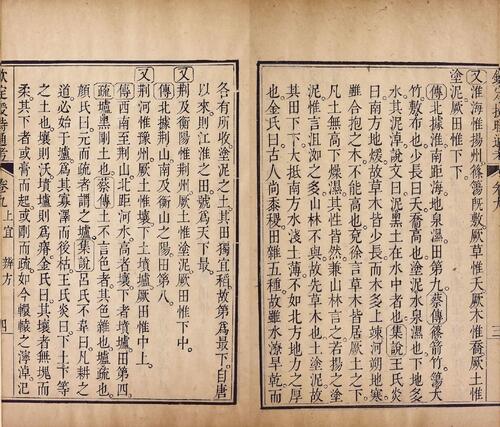 欽定授時通考 卷九
又淮海惟揚州篠簜既敷厥草惟夭厥木惟喬厥土惟
塗泥厥田惟下下
傳北據淮南距海地泉濕田第九蔡傳篠箭竹簜大
竹敷布也少長曰夭喬高也塗泥水泉濕也下地多
水其泥淖說文曰泥黑土在水中者也集說王氏炎
曰南方地煖故草木皆少長而木多上竦河朔地寒
雖合抱之木不能高也兗徐言草木皆居厥土之下
凡土無高下燥濕其性皆然兼山林言之若揚之塗
泥惟言沮洳之多山林不與故先草木也土塗泥故
其田下下大抵南方水淺土薄不如北方地力之厚
也金氏曰古人尚黍稷田雜五種故雖水潦旱乾而
三
各有所收塗泥之土其田獨宜稻故第爲最下自唐
以來則江淮之田號爲天下最
又荊及衡陽惟荊州厥土惟塗泥厥田惟下中
傳北據荊山南及衡山之陽田第八
又荊河惟豫州厥土惟壤下土墳壚厥田惟中上
傳西南至荊山北距河水高者壤下者墳壚田第四
疏壚黑剛土也蔡傳土不言色者其色雜也壚疏也
顏氏曰元而疏者謂之壚集說呂氏不韋曰凡耕之
道必始于壚爲其寡澤而後枯王氏炎曰下土下等
之土也壤則沃墳壚則爲瘠金氏曰其壤者無塊而
柔其下者或膏而起或剛而疏如今轘轅之濘淖汜
欽定授時通考 卷九 土宜 辨方 四